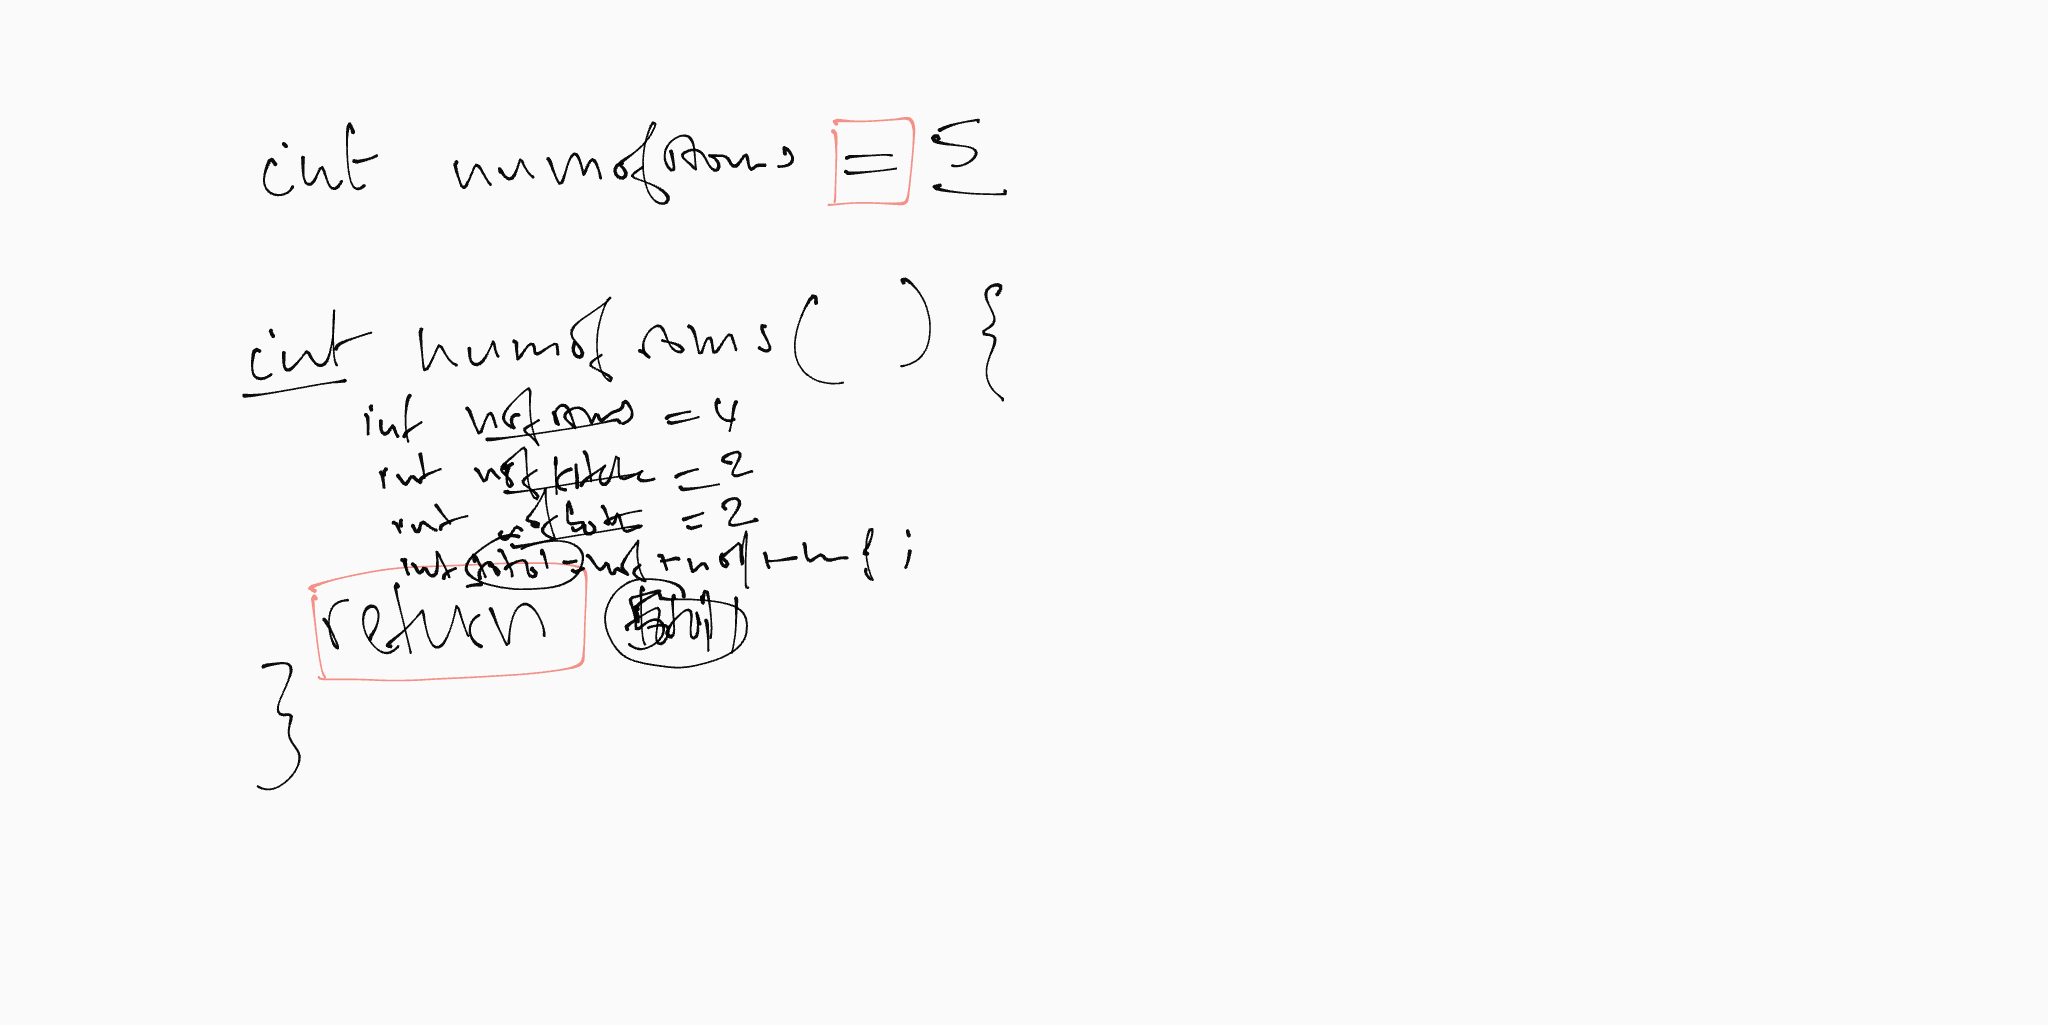 int numofrooms = 5
int numofrooms( ) {
int nofrooms = 4
int nofkitch = 2
int nofbath = 2
int total = nof + nof + nf ;
return total
}